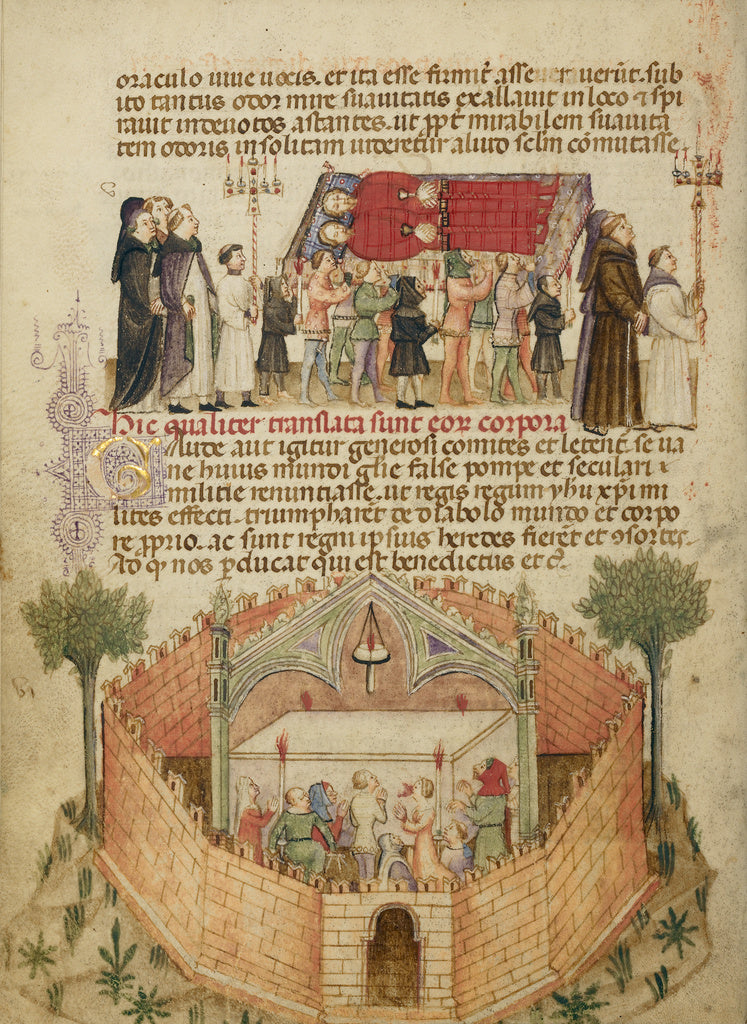 oraculo uiue uocis. et ita esse firmit̃ asseueruerũt. sub
ito tantus odor mire suauitatis exallauit in loco ⁊ spi
rauit in deuotos astantes. ut ꝓpt̃ mirabilem suauita
tem odoris insolitam uideretur aliud sclm cõmutasse.
Hic qualiter translata sunt eoꝝ corpora
Gaude aut igitur generosi comites et letent̃ se ua
ne huius mundi glie false pompe et seculari
militie renuntiasse. ut regis regum yhu xp̃i mi
lites effecti. triumpharẽt de diabolo mundo et corpo
re ꝓprio. ac sunt regni ipsius heredes fierẽt et ꝯsortes.
Ad qͥ nos ꝑducat qui est benedictus et c̃.